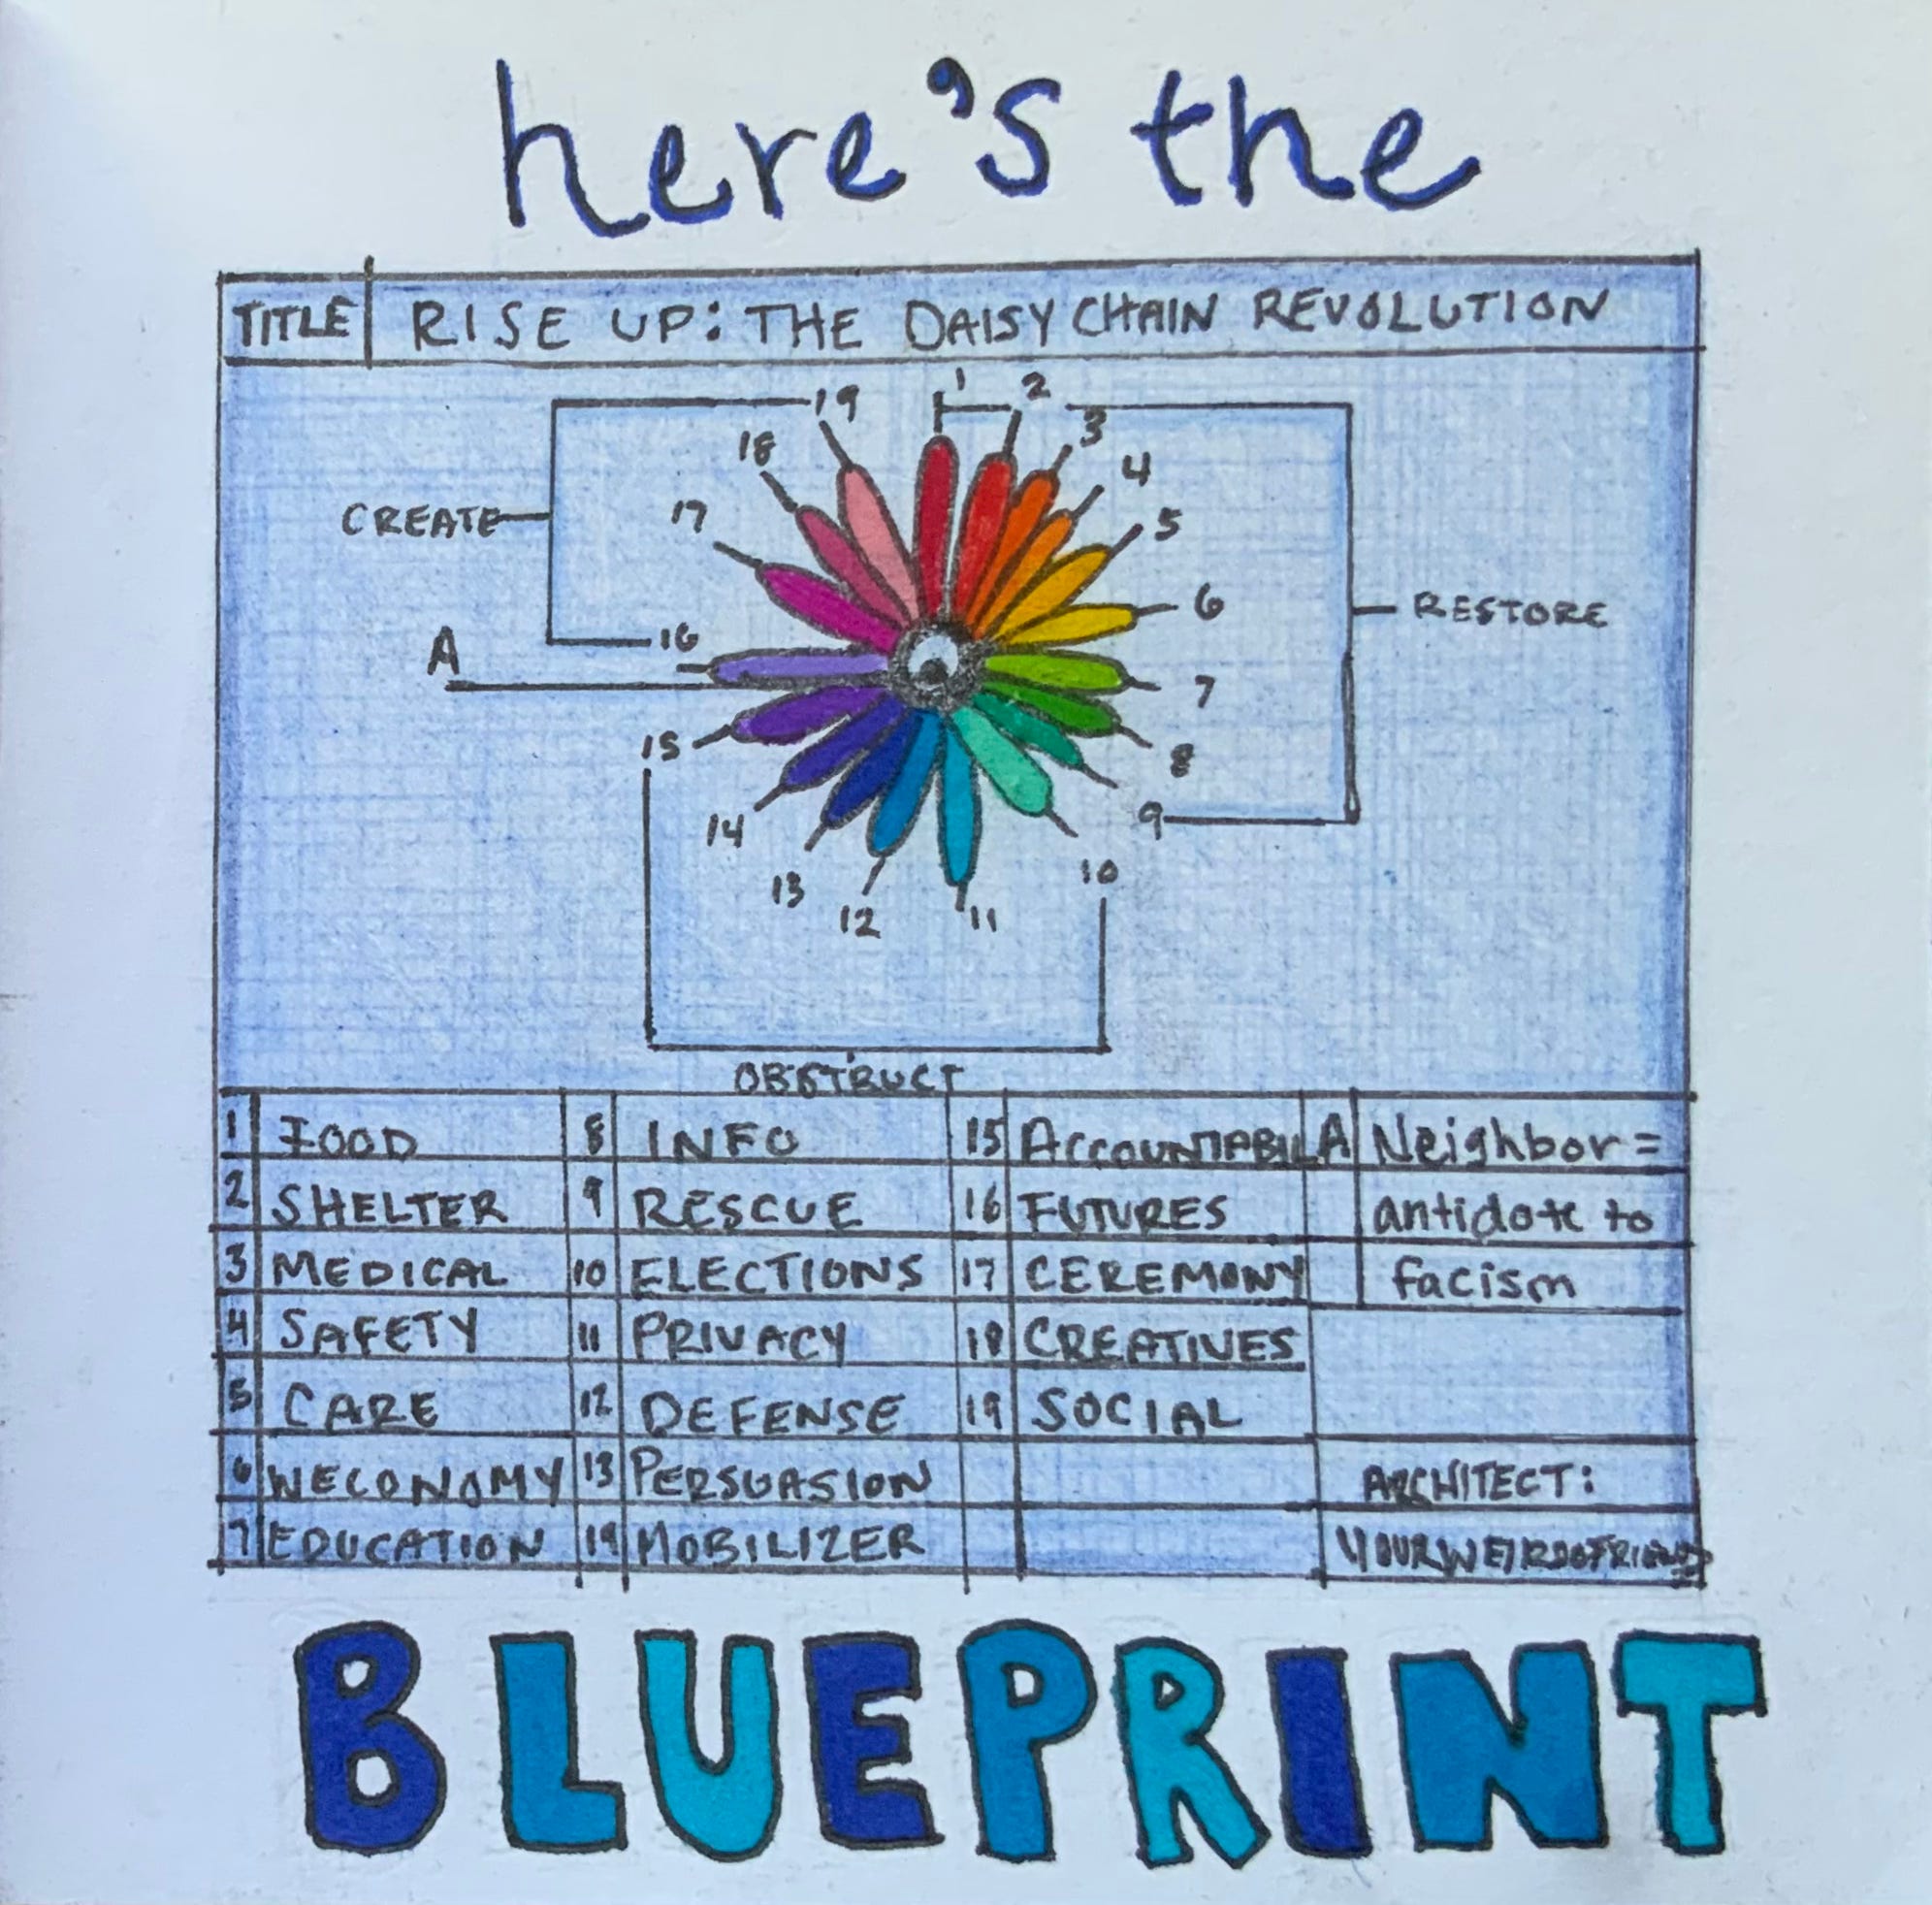 here's the
TITLE RISE UP: THE DAISY CHAIN REVOLUTION
1
2
3
4
5
6
7
8
9
10
11
12
13
14
15
16
17
18
19
CREATE
A
RESTORE
OBSTRUCT
1 FOOD 8 INFO 15 ACCOUNTABIL A Neighbor =
2 SHELTER 9 RESCUE 16 FUTURES antidote to
3 MEDICAL 10 ELECTIONS 17 CEREMONY facism
4 SAFETY 11 PRIVACY 18 CREATIVES
5 CARE 12 DEFENSE 19 SOCIAL
6 WECONOMY 13 PERSUASION ARCHITECT:
7 EDUCATION 14 MOBILIZER YOURWEIRDOFRIEND
BLUEPRINT